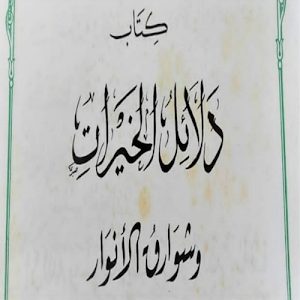 كِتَاب
دَلَائِلُ الخَيْرَاتِ
وشوارق الأنوار